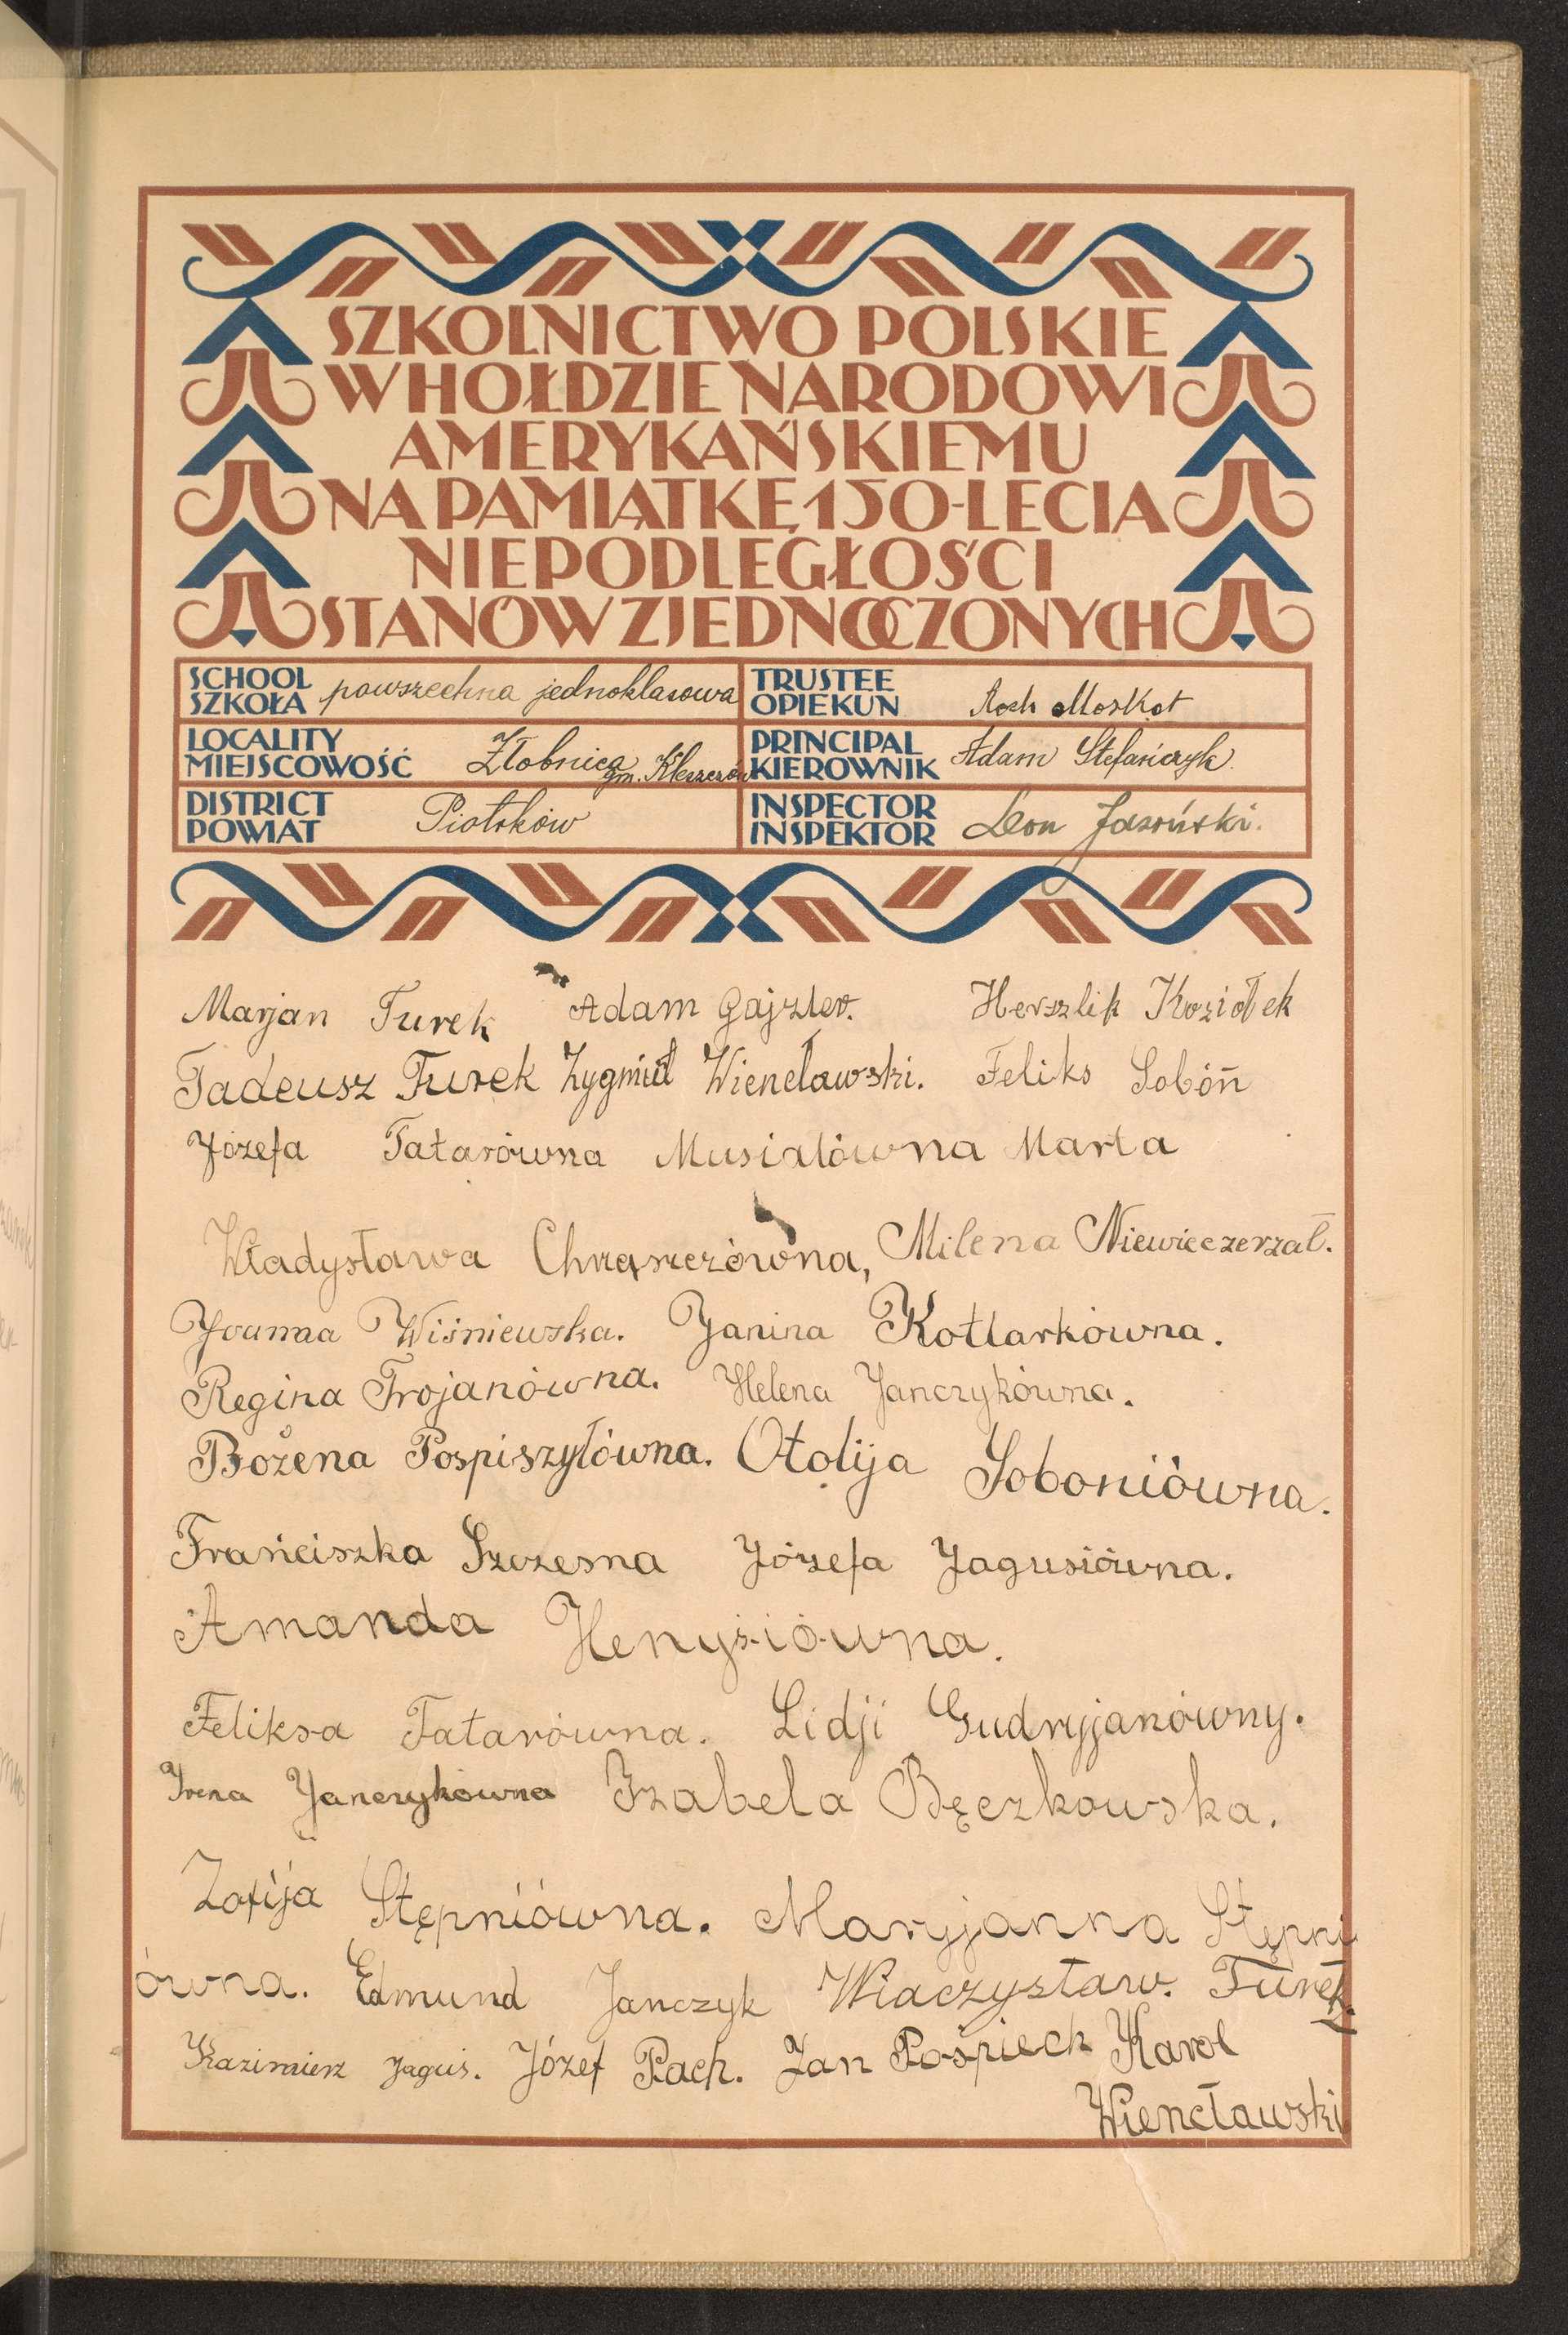 SZKOLNICTWO POLSKIE
W HOŁDZIE NARODOWI
AMERYKAŃSKIEMU
NA PAMIĄTKĘ 150-LECIA
NIEPODLEGŁOŚCI
STANÓW ZJEDNOCZONYCH
SCHOOL
SZKOŁA powszechna jednoklasowa
TRUSTEE
OPIEKUN Roch Moskot
LOCALITY
MIEJSCOWOŚĆ Złobnica gm. Kleszczów
PRINCIPAL
KIEROWNIK Adam Stefańczyk
DISTRICT
POWIAT Piotrków
INSPECTOR
INSPEKTOR Leon
Marjan Turek Adam Gajzler. Herszlik Koziołek
Tadeusz Turek Zygmut Wiencławski. Feliks Soboń
Józefa Tatarówna Musialówna Marta
Władysława Chrząszczówna, Milena Niewieczerzał.
Joanna Wiśniewska. Janina Kotlarkówna.
Regina Trojanówna. Helena Janczykówna.
Bożena Pospiszyłówna. Otolija Soboniówna.
Frańciszka Szczesna Józefa Jagusiówna.
Amanda Henysiówna.
Feliksa Tatarówna. Lidji Gudryjanówny.
Irena Janczykówna Izabela Bęczkowska.
Zofija Stępniówna. Maryjanna Stępni
ówna. Edmund Janczyk Wiaczysław. Turek.
Kazimierz Jaguś. Józef Pach. Jan Pośpiech Karol
Wiencławski